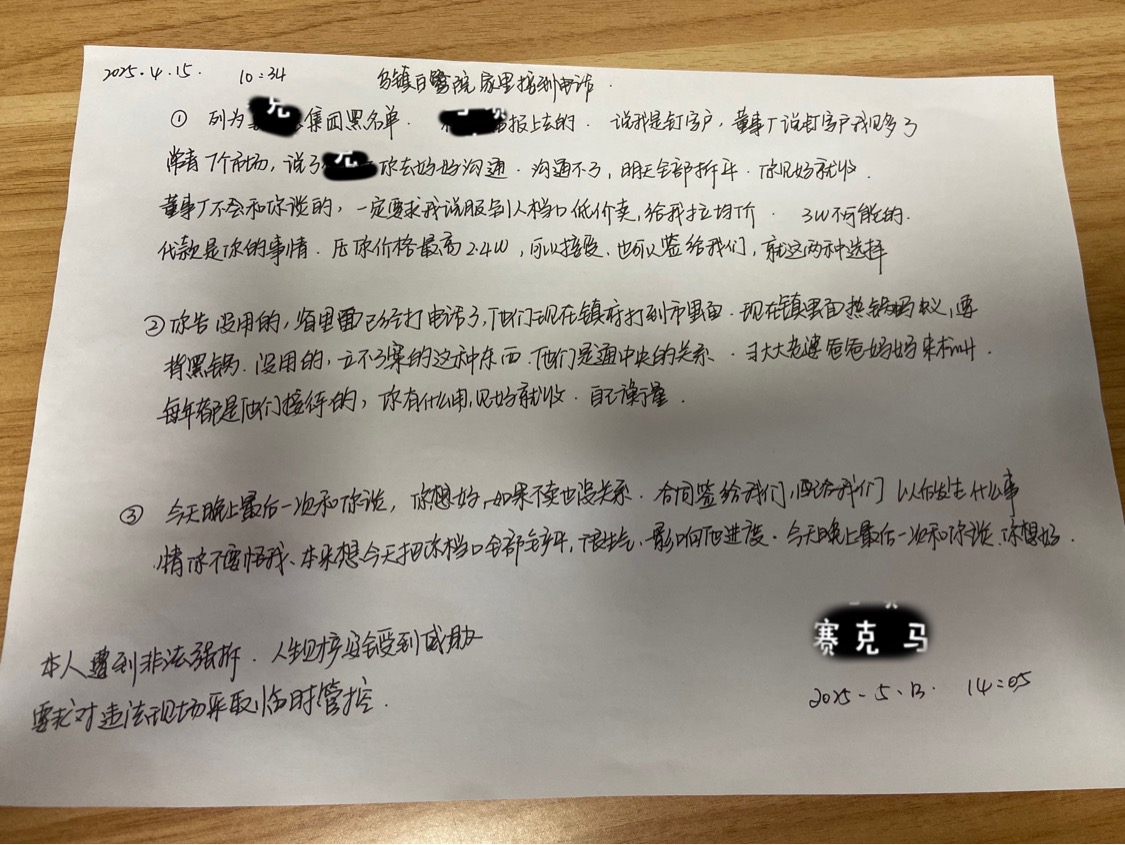 2025.4.15. 10:34 乡镇日医院家里接到电话.
① 列为 集团黑名单. 报上去的. 说我是钉子户, 董事厂说钉子户我见多了
常青7个市场, 说了 你去好好沟通. 沟通不了, 明天全部拆平. 你见好就收.
董事厂不会和你谈的, 一定要求我说服别人档口低价卖, 给我拉均价. 3W不可能的.
代款是你的事情. 压你价格最高2.4W, 可以接受, 也可以签给我们, 就这两种选择
② 你告没用的, 省里面已经打电话了, 他们现在镇府打到市里面. 现在镇里面热锅蚂蚁, 要
背黑锅. 没用的, 立不了案的这种东西. 他们是通中央的关系. 大大老婆爸爸妈妈来杭州.
每年都是他们接待的, 你有什么用, 见好就收. 自己衡量.
③ 今天晚上最后一次和你谈, 你想好, 如果不卖也没关系. 合同签给我们, 配合我们 以后发生什么事
情你不要怪我、本来想今天把你档口全部铲平, 很生气, 影响他进度. 今天晚上最后一次和你谈、你想好.
本人遭到非法强拆. 人生财产安全受到威胁
要求对违法现场采取临时管控.
赛克马
2025-5.13. 14:05